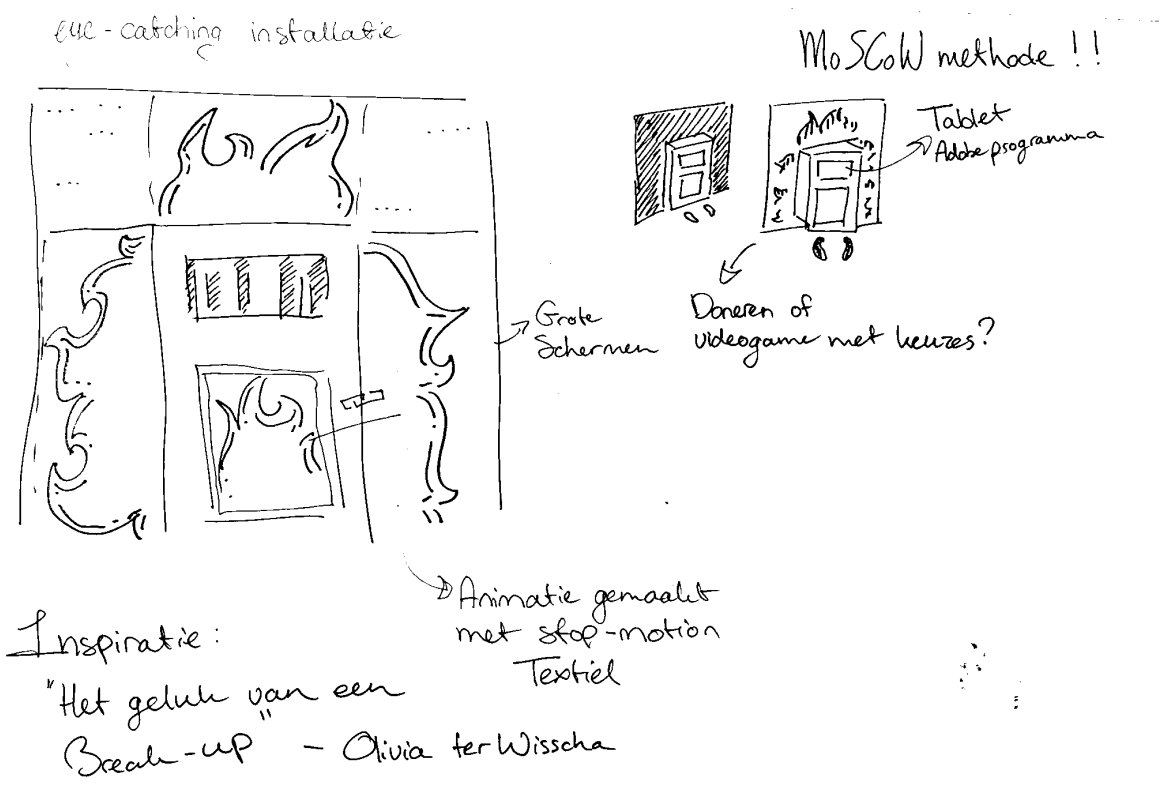 eye-catching installatie
MoSCoW methode !!
Tablet
Adobe programma
Grote
Schermen
Doneren of
videogame met keuzes?
Animatie gemaakt
met stop-motion
Textiel
Inspiratie:
"Het geluk van een
Break-up" - Olivia ter Wisscha